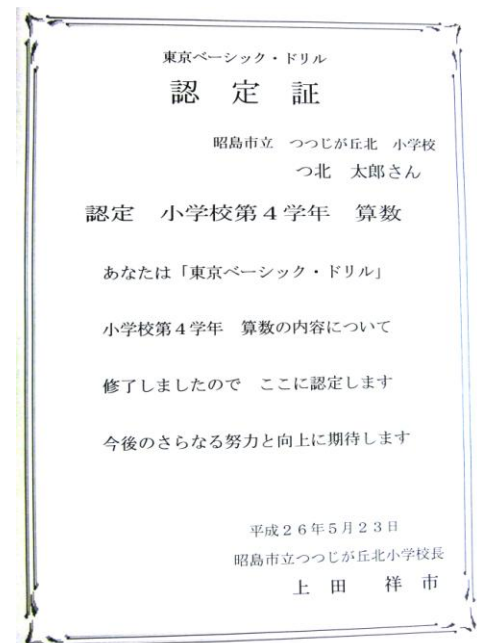 東京ベーシック・ドリル
認　定　証
昭島市立　つつじが丘北　小学校
つ北　太郎さん
認定　小学校第４学年　算数
あなたは「東京ベーシック・ドリル」
小学校第４学年　算数の内容について
修了しましたので　ここに認定します
今後のさらなる努力と向上に期待します
平成２６年５月２３日
昭島市立つつじが丘北小学校長
上　田　　祥　市